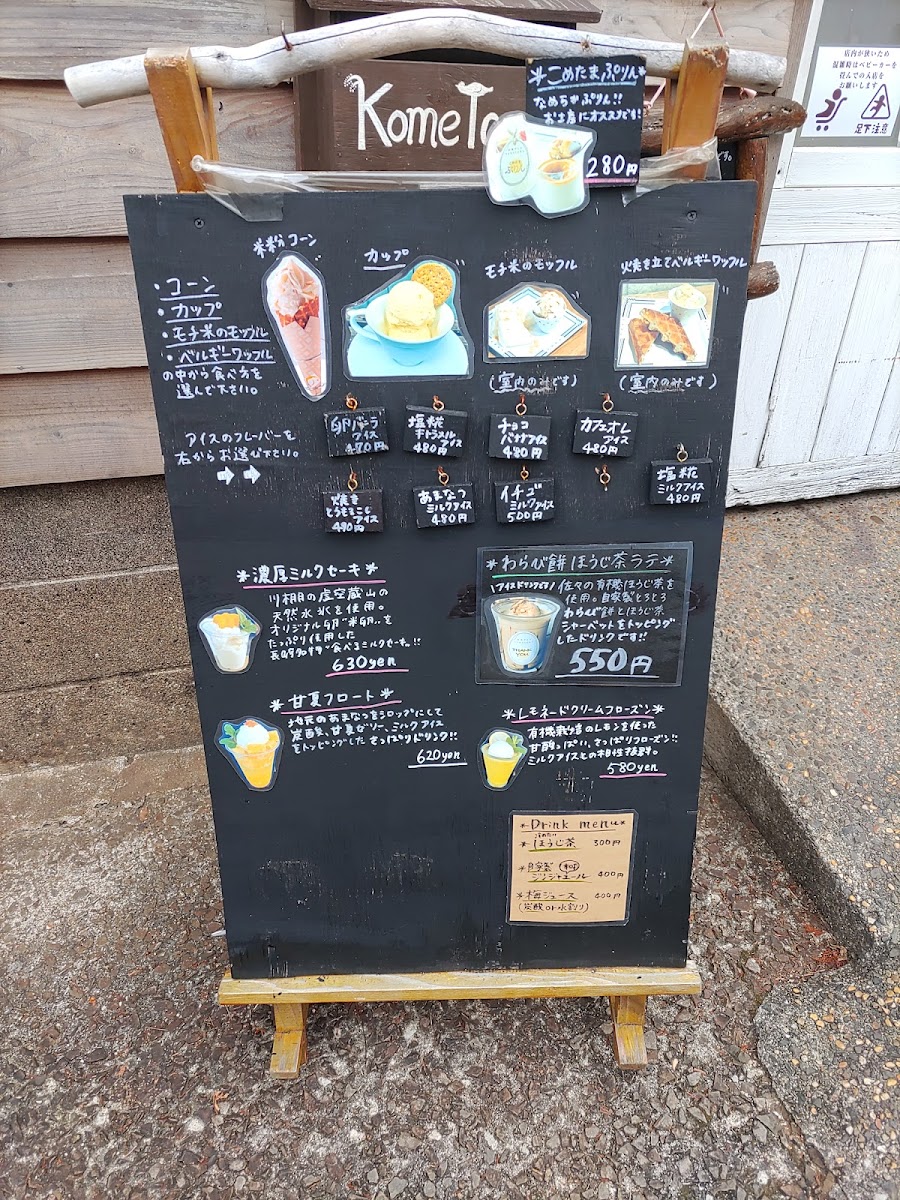 KomeTa
*こめたまぷりん*
なめらかぷりん!!
お土産にオススメです!
280円
店内が狭いため
混雑時はベビーカーを
畳んでの入店を
お願いします
足下注意
米粉コーン
カップ
モチ米のモッフル
(室内のみです)
焼き立てベルギーワッフル
(室内のみです)
・コーン
・カップ
・モチ米のモッフル
・ベルギーワッフル
の中から食べ方を
選んで下さい。
アイスのフレーバーを
右からお選び下さい。
卵バニラ
アイス
480円
塩糀
キャラメル
アイス
480円
チョコ
バナナアイス
480円
カフェオレ
アイス
480円
焼き
とうもろこし
アイス
480円
あまなつ
ミルクアイス
480円
イチゴ
ミルクアイス
500円
塩糀
ミルクアイス
480円
*濃厚ミルクセーキ*
川棚の虚空蔵山の
天然水氷を使用。
オリジナル卵"米卵"を
たっぷり使用した
長崎名物"食べるミルクセーキ"!!
630yen
*わらび餅ほうじ茶ラテ*
アイスドリンクです
佐々の有機ほうじ茶を
使用。自家製とろとろ
わらび餅とほうじ茶
シャーベットをトッピング
したドリンクです!!
THANK
YOU
550円
*甘夏フロート*
地元のあまなつをシロップにして
炭酸、甘夏ゼリー、ミルクアイス
をトッピングしたさっぱりドリンク!!
620yen
*レモネードクリームフローズン*
有機栽培のレモンを使った
甘酸っぱい、さっぱりフローズン!!
ミルクアイスとの相性抜群。
580yen
*Drink menu*
*つめたい
ほうじ茶 300円
*自家製
ジンジャエール 400円
*梅ジュース 400円
(炭酸or水割り)